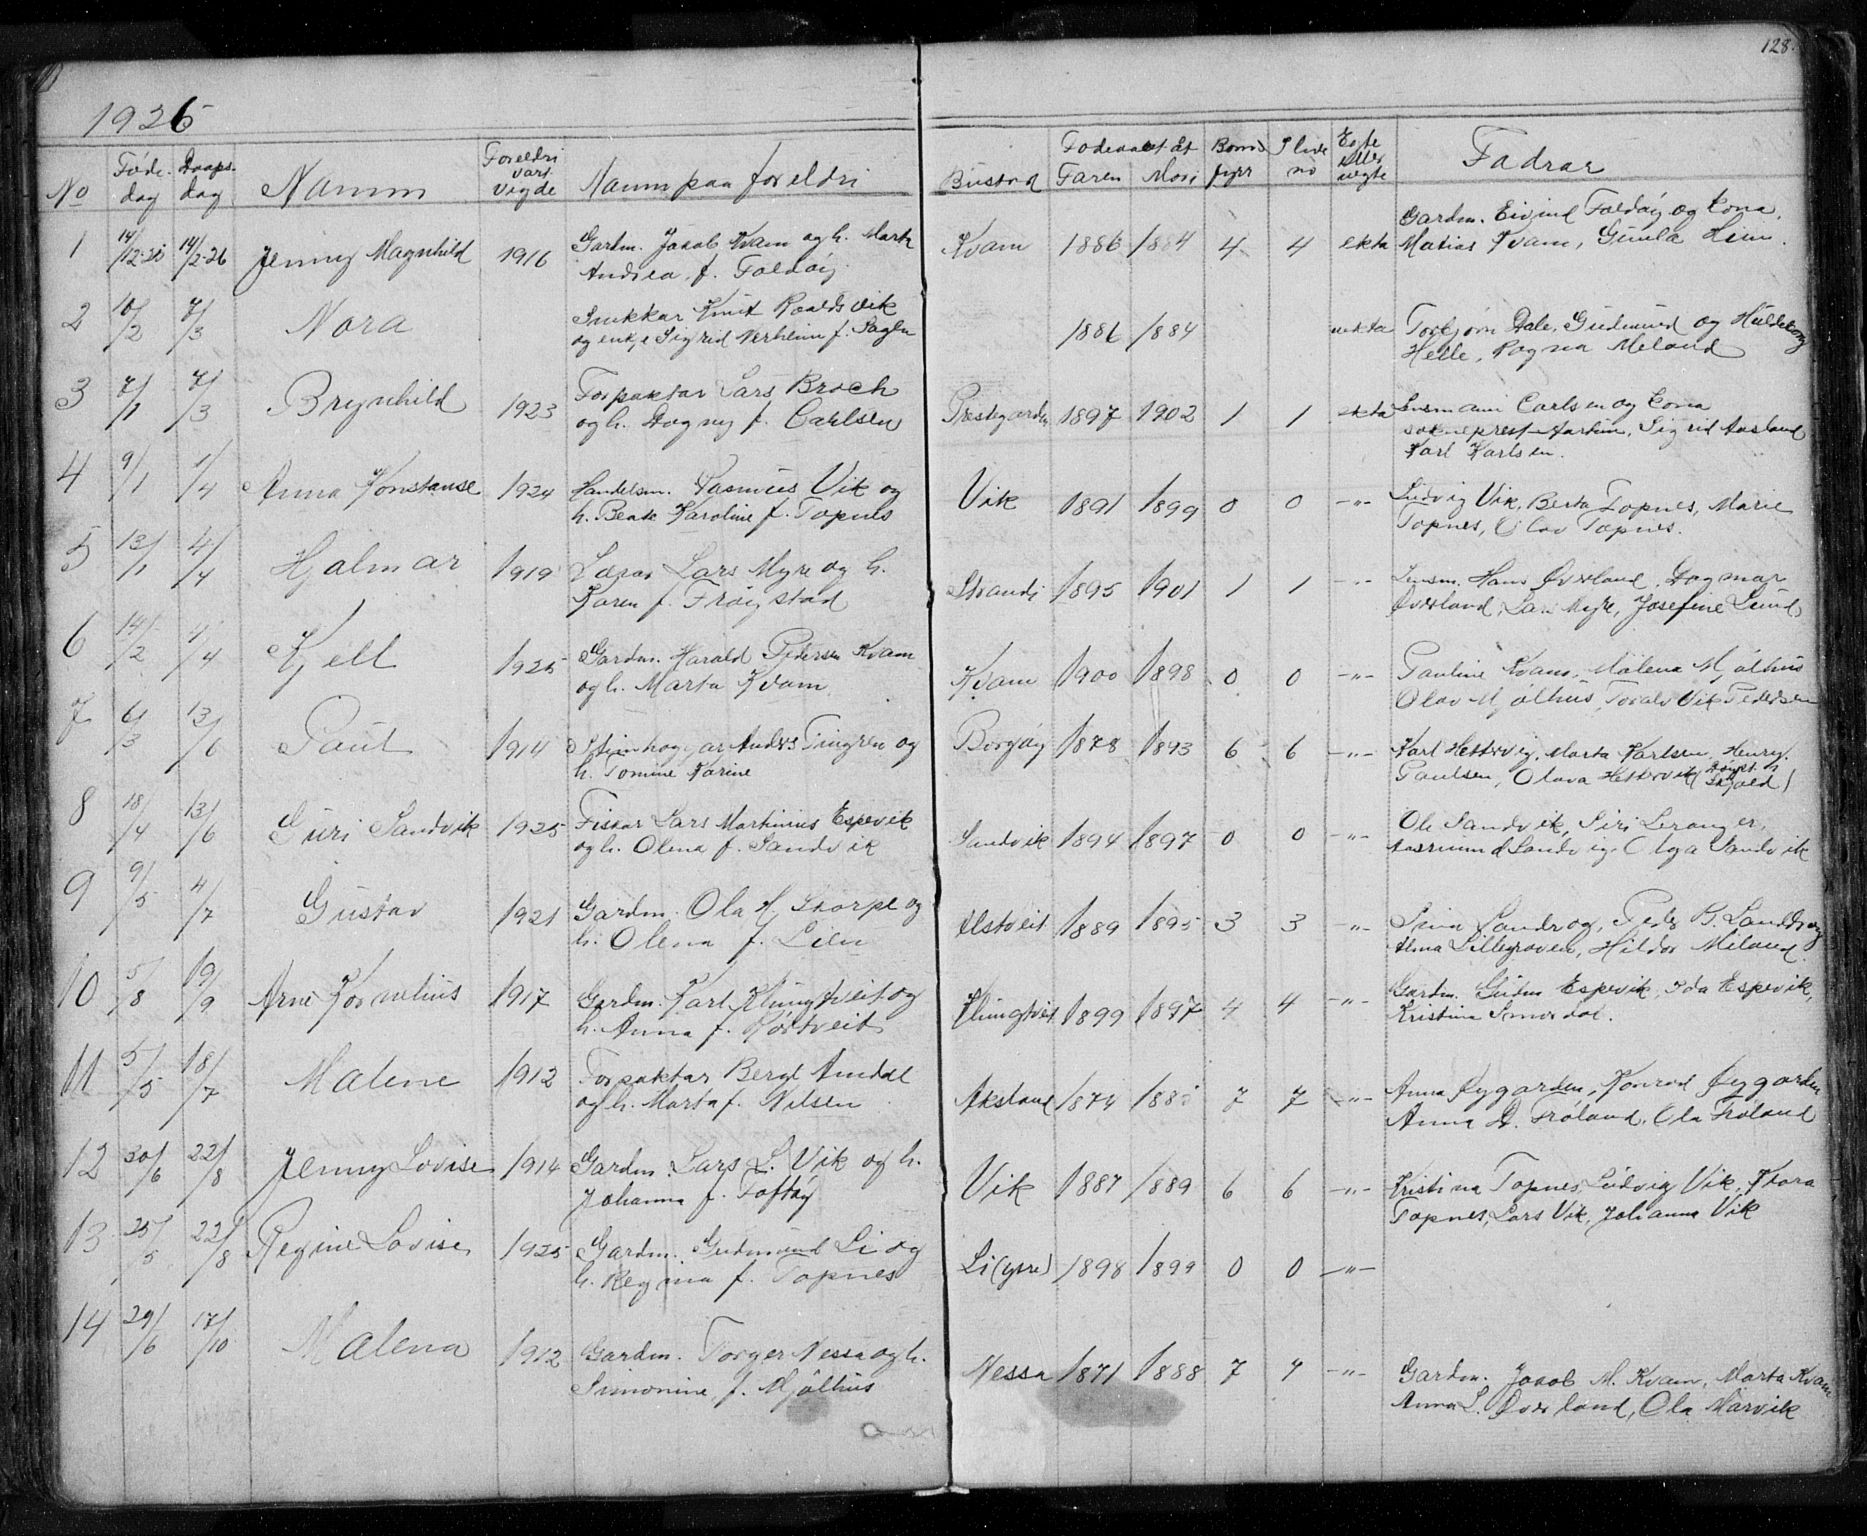 128.
1926
No Føde-dag Daaps-dag Namn Foreldri vart vigde Namn paa foreldri Bustad Fødeaaret åt Faren Mori Born fyrr I live no Egte eller uegte Fadrar
1 14/12-25 14/2-26 Jenny Magnhild 1916 Gardm. Jakob Kvam og h. Marta Kvam 1886 1884 4 4 ekta Gardm. Eivind Foldøy og kona,
Andrea, f. Foldøy. Matias Kvam, Gunla Lien.
2 10/2 7/3 Nora Snikkar Knut Roaldsvik 1886 1884 uekta Torbjørn Dale, Gudmund og Huldeborg
og enkje Sigrid Nerheim f. Hagen Helle, Ragna Meland
3 7/1 7/3 Brynhild 1923 Forpaktar Lars Broch Prestegarden 1897 1902 1 1 ekta Lensmann Carlsen og kona
og h. Dagny f. Carlsen sokneprest Sigrid Aasland
Karl Karlsen.
4 9/1 1/4 Anna Konstanse 1924 Handelsm. Rasmus Vik og Vik 1891 1899 0 0 -"- Ludvig Vik, Berta Topnes, Marie
h. Beate Karoline f. Topnes Topnes, Olav Topnes.
5 13/1 4/4 Hjalmar 1919 Lærar Lars Myre og h. Strandi 1895 1901 1 1 -"- Lensm. Hans Øverland, Dagmar
Karen f. Frøystad Øverland, Lars Myre, Josefine Lund
6 14/2 4/4 Kjell 1925 Gardm. Harald Pedersen Kvam Kvam 1900 1898 0 0 -"- Pauline Kvam, Malena Mjølhus
og h. Marta Kvam Olav Mjølhus, Toralv Vik Pedersen
7 6/3 13/6 Paul 1914 Steinhoggar Anders Tingren og Borgøy 1878 1893 6 6 -"- Karl Hettervig, Marta Karlsen, Henry
h. Tomine Karine Paulsen, Olava Hettervik (døypt i Skjold)
8 18/4 13/6 Guri Sandvik 1925 Fiskar Lars Martinius Espevik Sandvik 1894 1897 0 0 -"- Ole Sandvik, Siri Leranger,
og h. Olena f. Sandvik Aasmund Sandvig, Olga Sandvik
9 9/5 4/7 Gustav 1921 Gardm. Ola H. Skorpe og Alstveit 1889 1895 3 3 -"- Sina Sandvog, Peder B. Sandvog
h. Olena f. Lien Alma Lillegraven, Hildor Meland.
10 5/8 19/9 Arne Kornelius 1917 Gardm. Karl Klungtveit og Klungtveit 1899 1897 4 4 -"- Gardm. Gudm Espevik, Ida Espevik,
h. Anna f. Kørtveit Kristina Smørdal.
11 5/5 18/7 Malene 1912 Forpaktar Bernt Amdal Aksland 1874 7 7 -"- Anna Øygarden, Konrad Øygarden
og h. Marta f. Nilsen Anna D. Frøland, Ola Frøland
12 30/6 22/8 Jenny Lovise 1914 Gardm. Lars L. Vik og h. Vik 1887 1889 6 6 -"- Kristina Topnes, Ludvig Vik, Thora
Johanna f. Toftøy Topnes, Lars Vik, Johanna Vik
13 25/5 22/8 Regine Lovise 1925 Gardm. Gudmund Li og Li (ytre) 1898 1899 0 0 -"-
h. Regina f. Topnes
14 29/6 17/10 Malena 1912 Gardm. Torger Nessa og h. Nessa 1871 1888 7 7 -"- Gardm. Jakob M. Kvam, Marta Kvam
Simonine, f. Mjølhus Anna L. Øverland, Ola Marvik